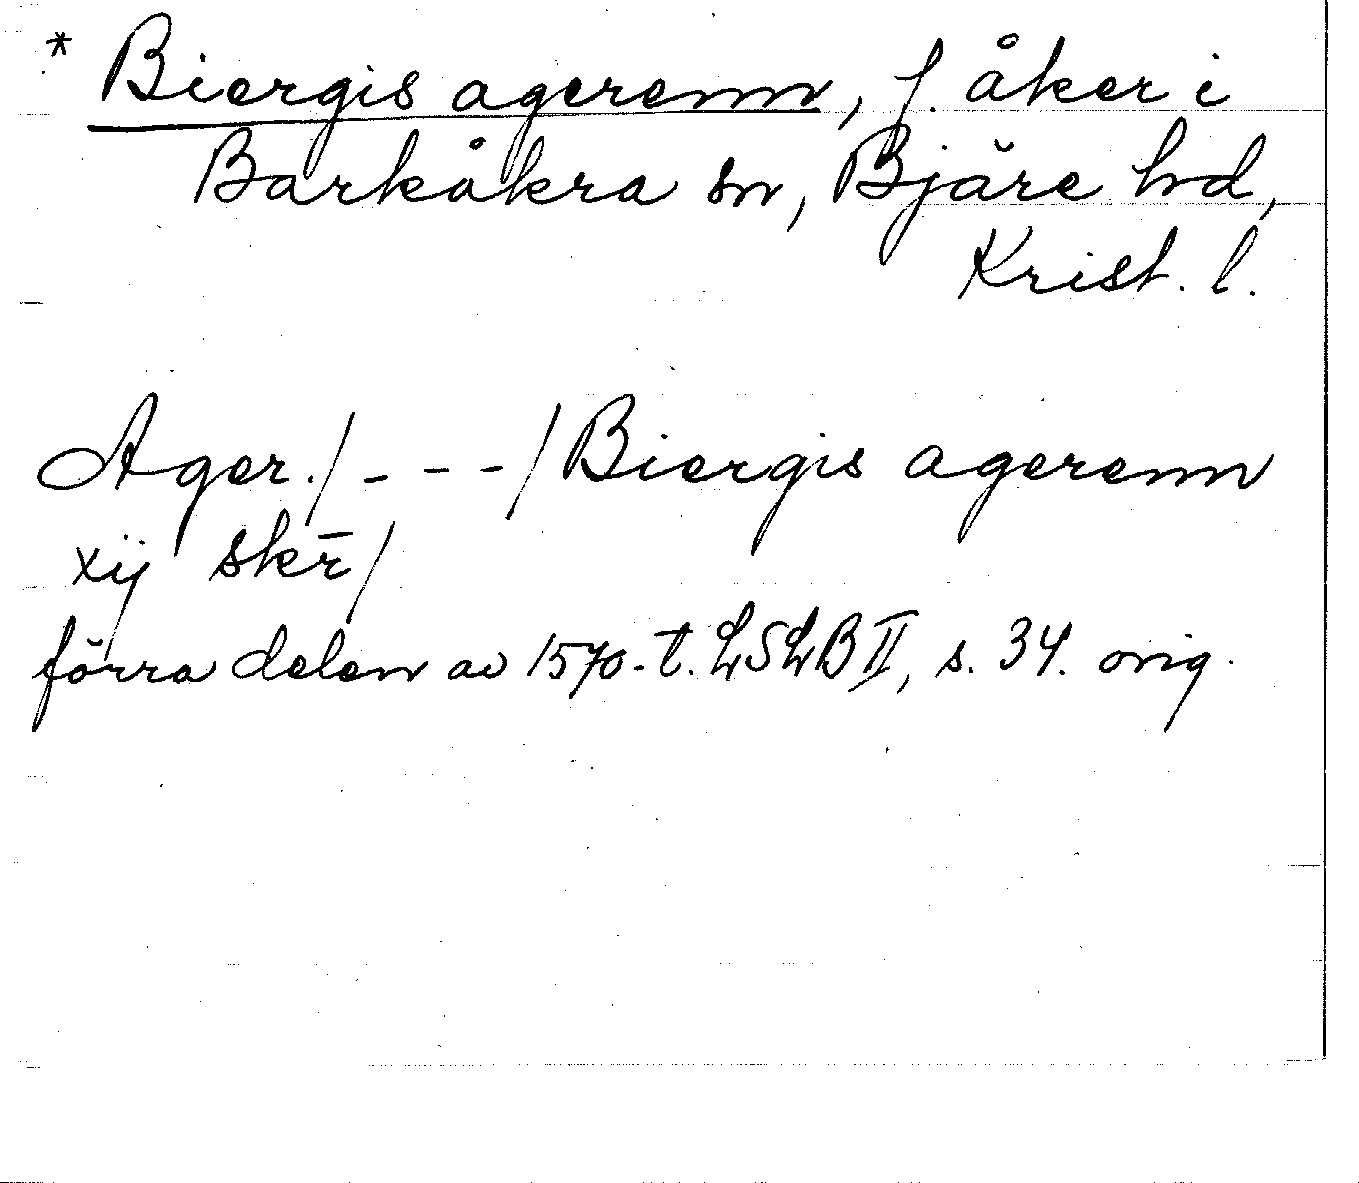 * Biergis agerenn, f. åker i
Barkåkra sn, Bjäre hd,
Krist. l.
Ager./ - - - / Biergis agerenn
xij skr̄/
förra delen av 1570-t. LSLB II, s. 34. orig.